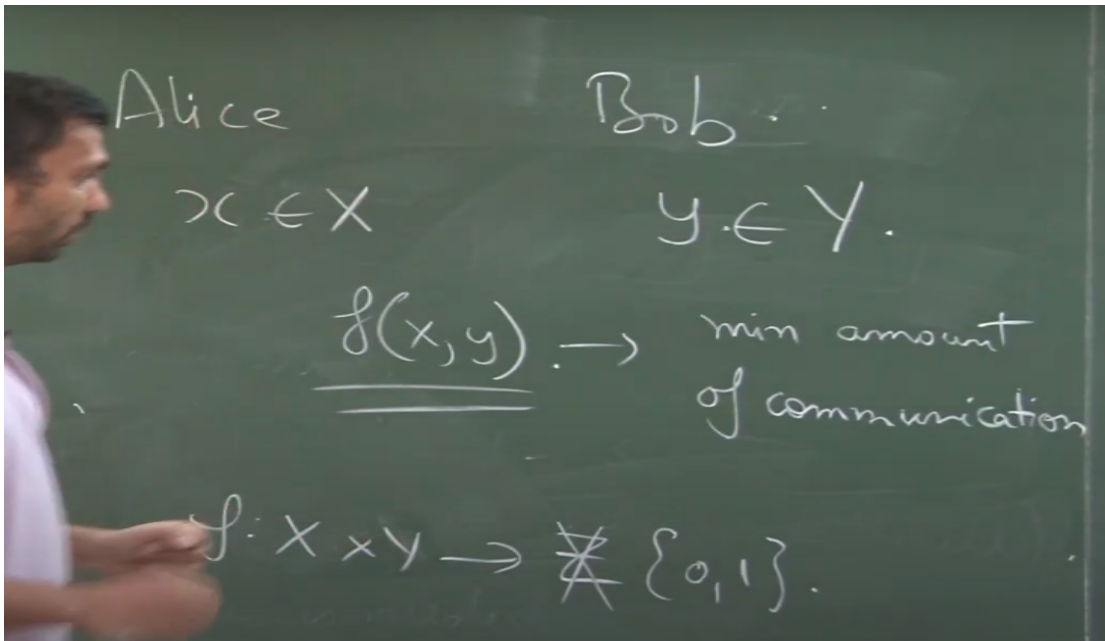 Alice Bob
x ∈ X y ∈ Y.
f(x,y) → min amount
of communication
f: X × Y → {0,1}.